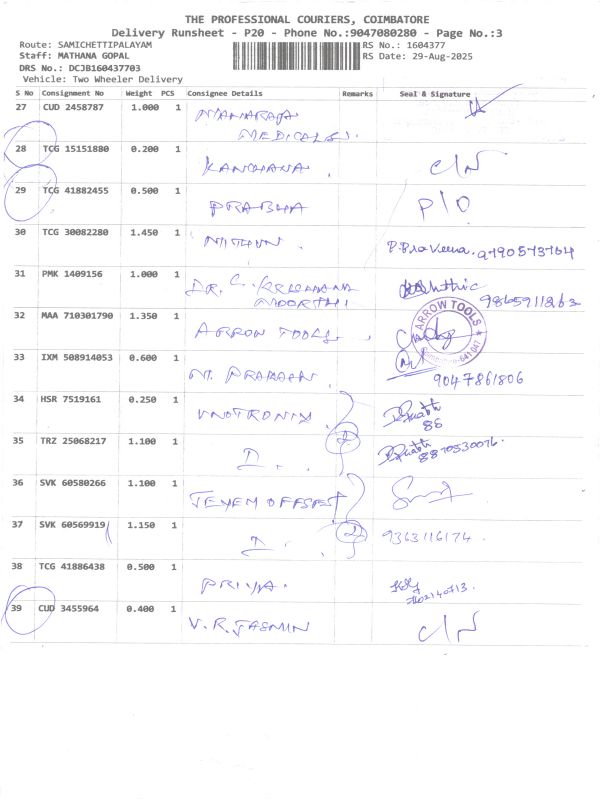 THE PROFESSIONAL COURIERS, COIMBATORE
Delivery Runsheet - P20 - Phone No.:9047080280 - Page No.:3
Route: SAMICHETTIPALAYAM RS No.: 1604377
Staff: MATHANA GOPAL RS Date: 29-Aug-2025
DRS No.: DCJB160437703
Vehicle: Two Wheeler Delivery
S No Consignment No Weight PCS Consignee Details Remarks Seal & Signature
27 CUD 2458787 1.000 1 MAHARAJA
MEDICALS.
28 TCG 15151880 0.200 1 KANCHANA. C/N
29 TCG 41882455 0.500 1 PRABHA P/O
30 TCG 30082280 1.450 1 NITHUN. P.Praveena. 9790573764
31 PMK 1409156 1.000 1 DR. C.
MOORTHI
32 MAA 710301790 1.350 1 ARROW TOOLS ARROW TOOLS
641 047
33 IXM 508914053 0.600 1 9047861806
34 HSR 7519161 0.250 1 VNOTRONIX
86
35 TRZ 25068217 1.100 1 D. 2 8870530076.
36 SVK 60580266 1.100 1 JEYEM OFFSET
37 SVK 60569919 1.150 1 D. 2 9363116174.
38 TCG 41886438 0.500 1 PRIYA.
39 CUD 3455964 0.400 1 V.R. JASMIN C/N